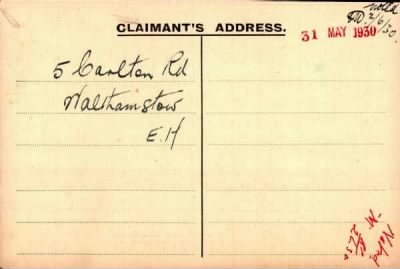 CLAIMANT'S ADDRESS.
31 MAY 1930
2/6/30.
5 Carlton Rd
Walthamstow
E.17
Noted